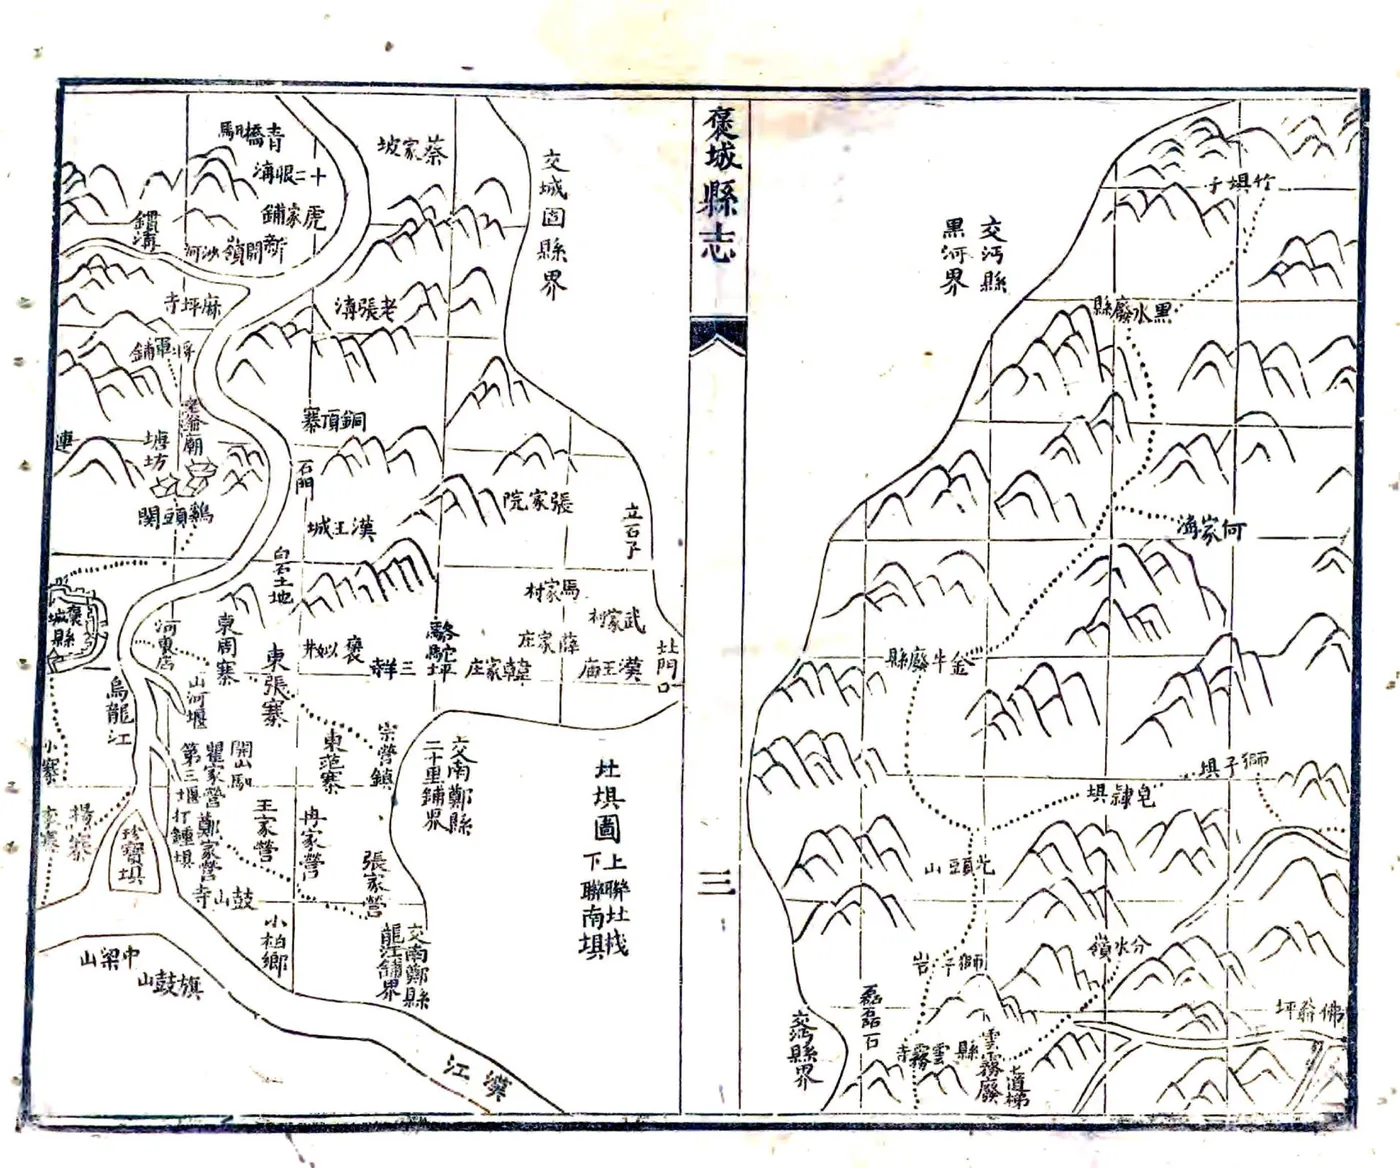 褒城縣志
三
竹垻子
交沔縣
黑河界
黑水廢縣
何家溝
金牛廢縣
獅子垻
皂隸垻
光頭山
分水嶺
獅子岩
佛爺坪
磊磊石
雲霧寺
雲霧廢縣
七道梯
交沔縣界
青橋馹
蔡家坡
交城固縣界
十二垠溝
虎家鋪
新開嶺
沙河
老張溝
麻坪寺
將軍鋪
銅頂寨
連
塘坊
石門
張家院
漢王城
雞頭關
立石子
白雲土地
馬家村
武家村
褒城縣
河東店
東周寨
薛家庄
駱駝坪
韓家庄
漢王庙
北門口
三羊寺
東張寨
烏龍江
山河堰
宗營鎮
東范寨
交南鄭縣
二十里鋪界
小寨
開山馹
瞿家營
第三堰
王家營
冉家營
鄭家營
打鍾垻
楊寨
李寨
珍寶垻
張家營
鼓山寺
小柏鄉
交南鄭縣
龍江鋪界
中梁山
旗鼓山
漢江
圵垻圖
上聯圵栈
下聯南垻